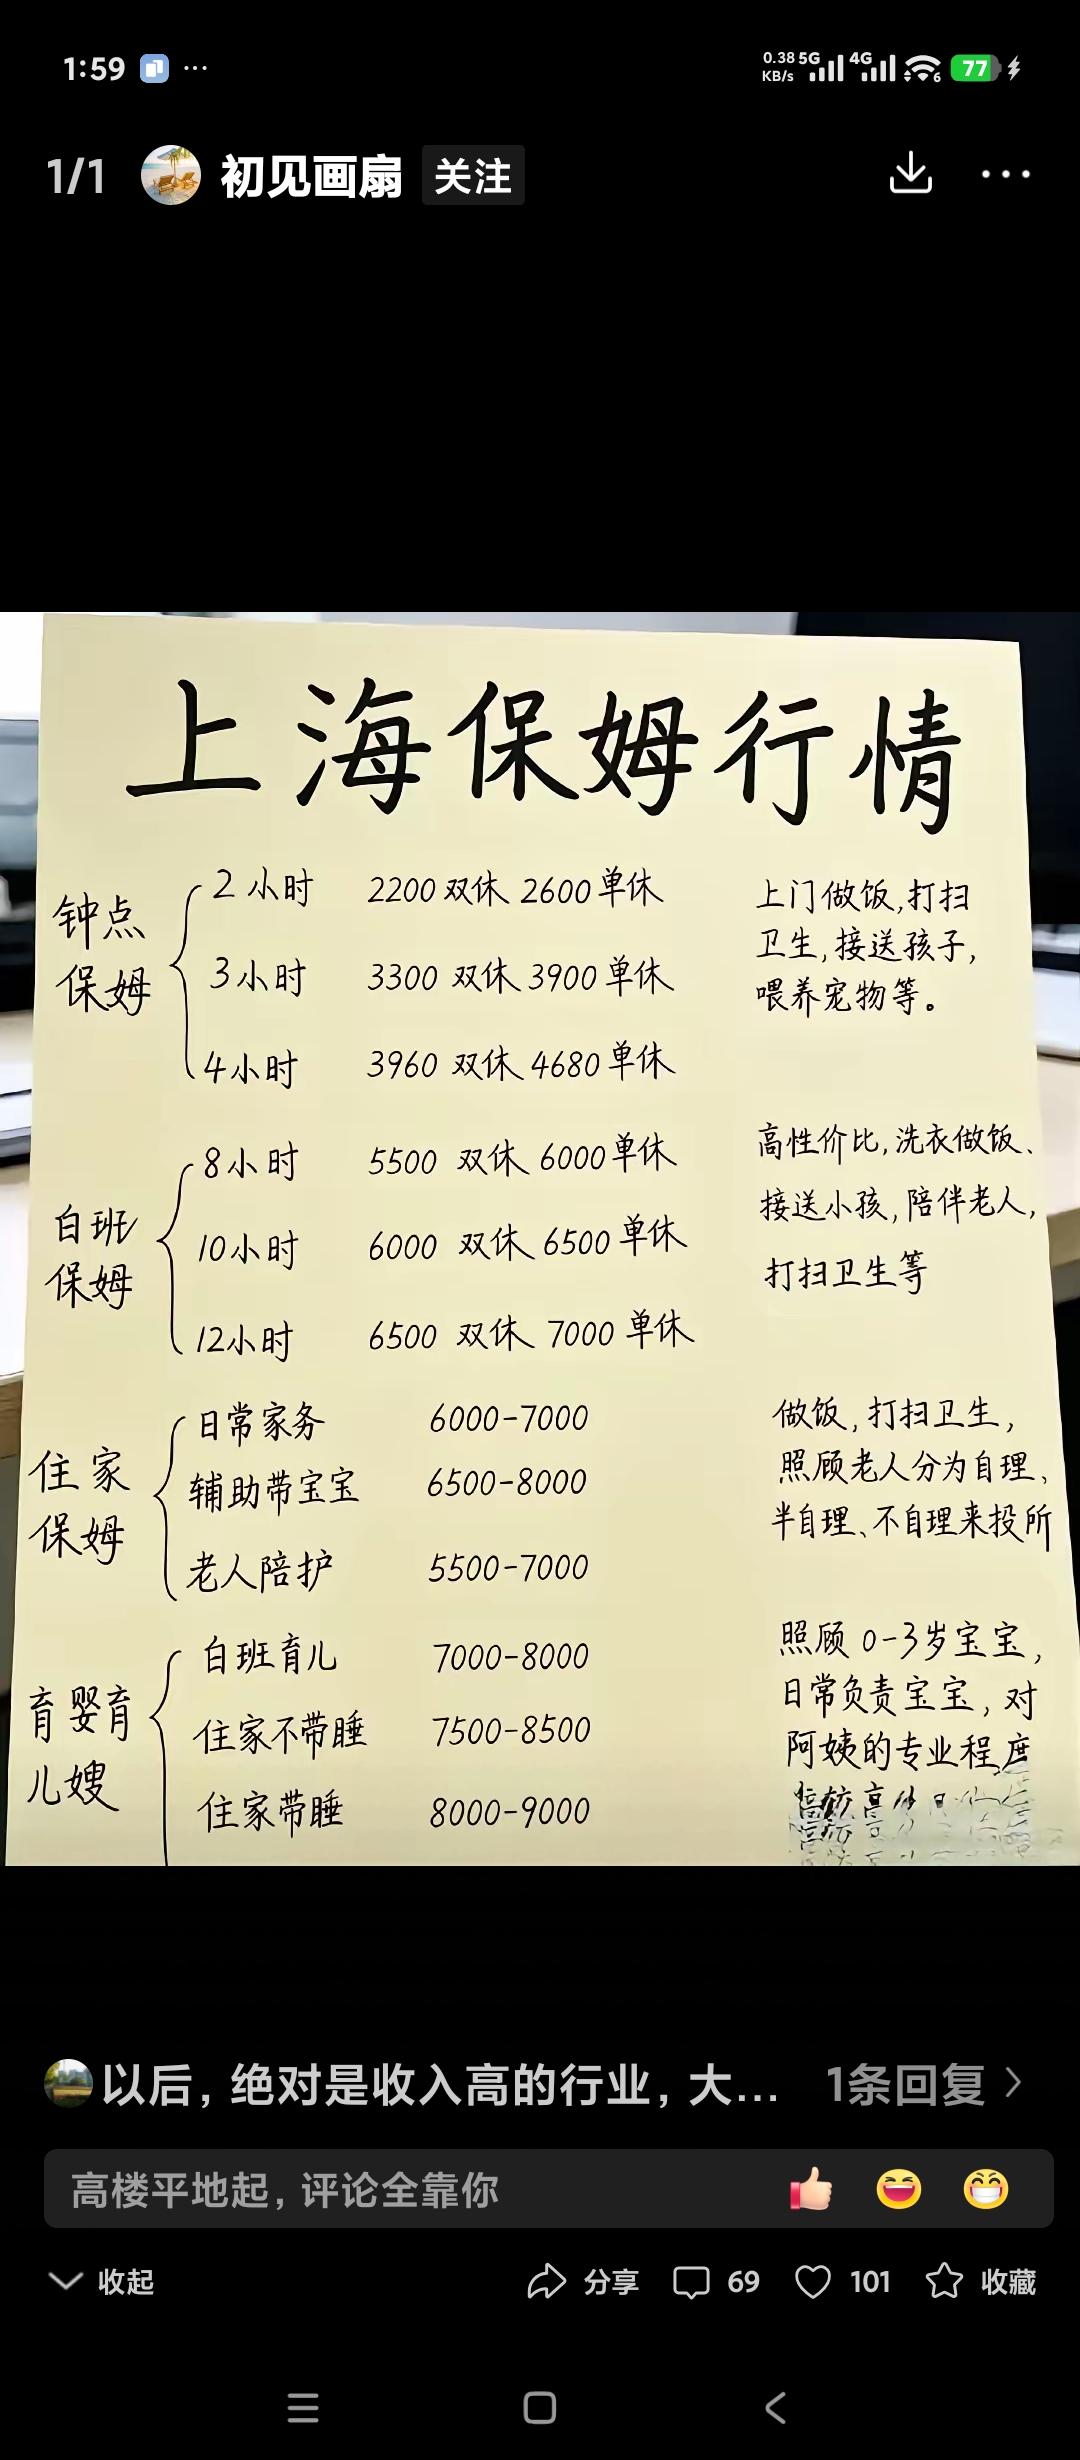 1:59
0.38 KB/s 5G 4G 6 77
1/1 初见画扇 关注
上海保姆行情
钟点保姆
2小时 2200双休 2600单休
3小时 3300双休 3900单休
4小时 3960双休 4680单休
上门做饭,打扫
卫生,接送孩子,
喂养宠物等。
白班保姆
8小时 5500双休 6000单休
10小时 6000双休 6500单休
12小时 6500双休 7000单休
高性价比,洗衣做饭、
接送小孩,陪伴老人,
打扫卫生等
住家保姆
日常家务 6000-7000
辅助带宝宝 6500-8000
老人陪护 5500-7000
做饭,打扫卫生,
照顾老人分为自理、
半自理、不自理来投所
育婴育儿嫂
白班育儿 7000-8000
住家不带睡 7500-8500
住家带睡 8000-9000
照顾0-3岁宝宝,
日常负责宝宝,对
阿姨的专业程度
以后，绝对是收入高的行业，大... 1条回复
高楼平地起，评论全靠你
收起 分享 69 101 收藏